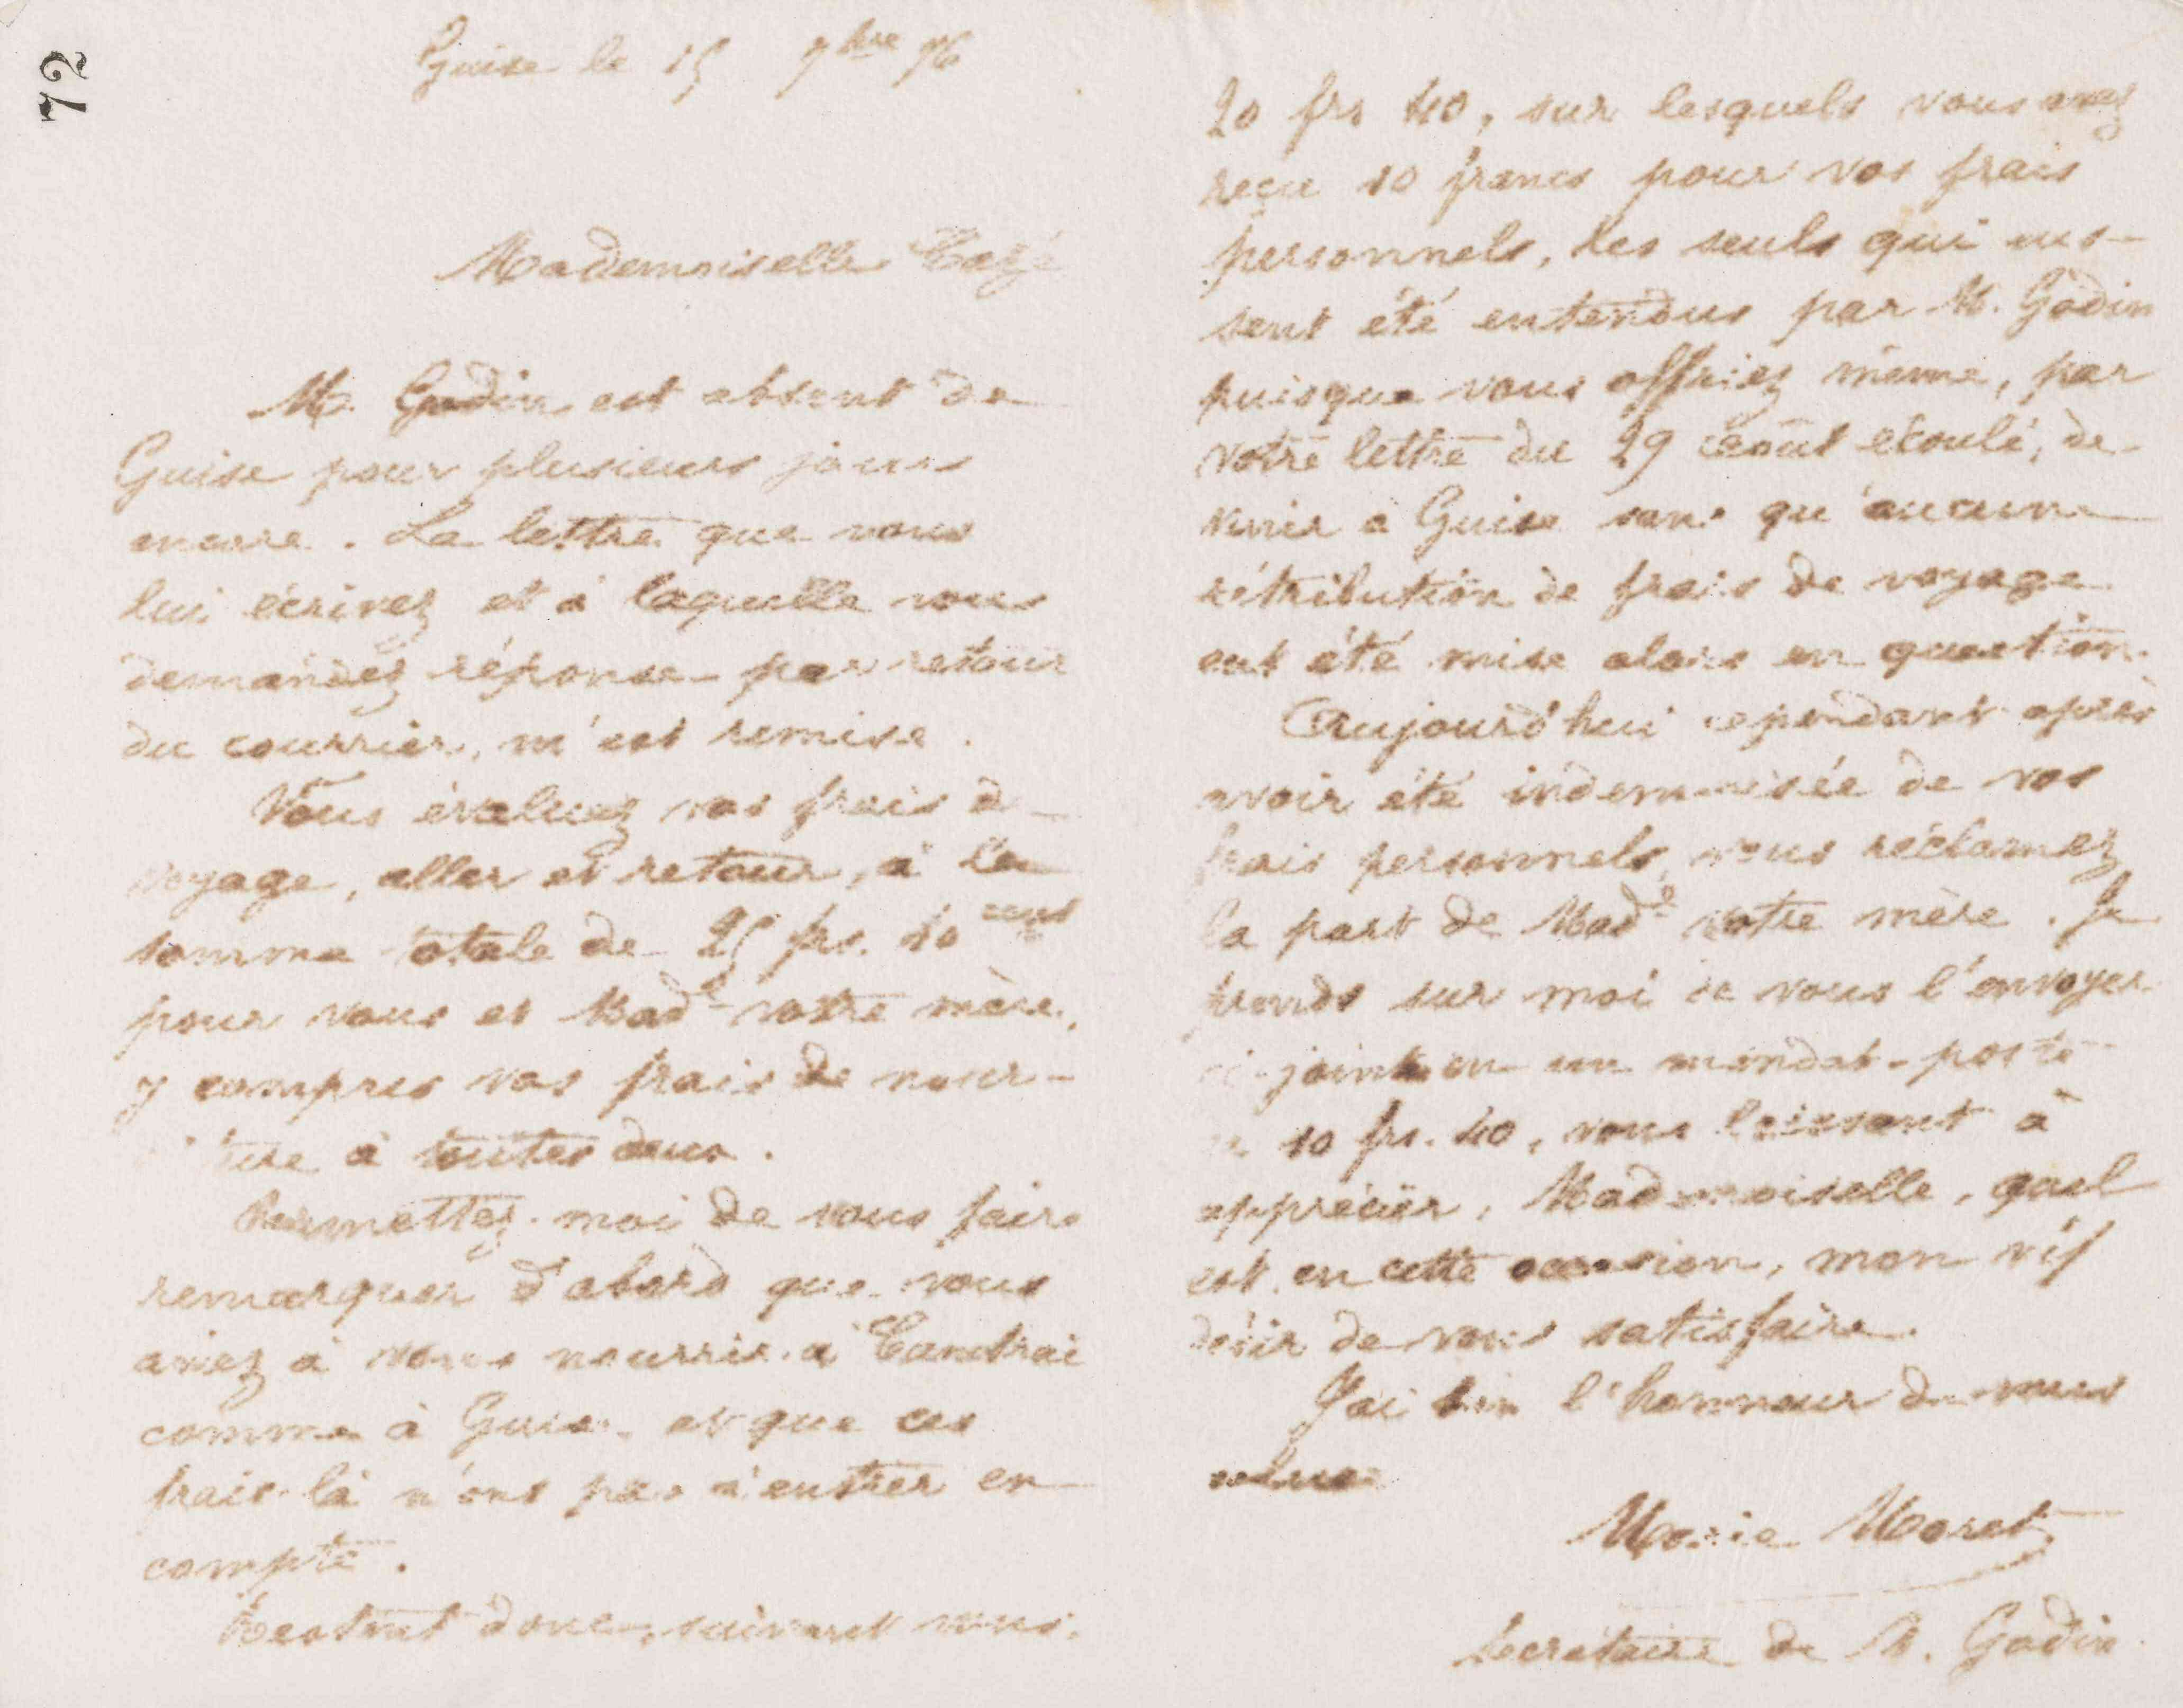 72
Guise le 15 7bre 76
Mademoiselle
M. Godin est absent de
Guise pour plusieurs jours
encore. La lettre que vous
lui écrivez et à laquelle vous
demandez réponse par retour
du courrier, m'est remise.
Vous évaluez vos frais de
voyage, aller et retour, à la
somme totale de 25 frs. 10 cent
pour vous et Made votre mère,
y compris vos frais de nour-
ture à toutes deux.
Permettez-moi de vous faire
remarquer d'abord que vous
aviez à vous nourrir à Cambrai
comme à Guise et que ces
frais-là n'ont pas à entrer en
compte.
Restent donc, suivant vous,
20 frs 40, sur lesquels vous avez
reçu 10 francs pour vos frais
personnels, les seuls qui eus-
sent été entendus par M. Godin
puisque vous offriez même, par
votre lettre du 29 août écoulé, de
venir à Guise sans qu'aucune
rétribution de frais de voyage
eut été mise alors en question.
Aujourd'hui cependant après
avoir été indemnisée de vos
frais personnels, vous réclamez
la part de Made votre mère. Je
prends sur moi de vous l'envoyer
ci-joint en un mandat-poste
10 frs. 40, vous laissant à
apprécier, Mademoiselle, quel
est en cette occasion, mon vif
désir de vous satisfaire.
J'ai bien l'honneur de vous
saluer
Marie Moret
Secrétaire de M. Godin